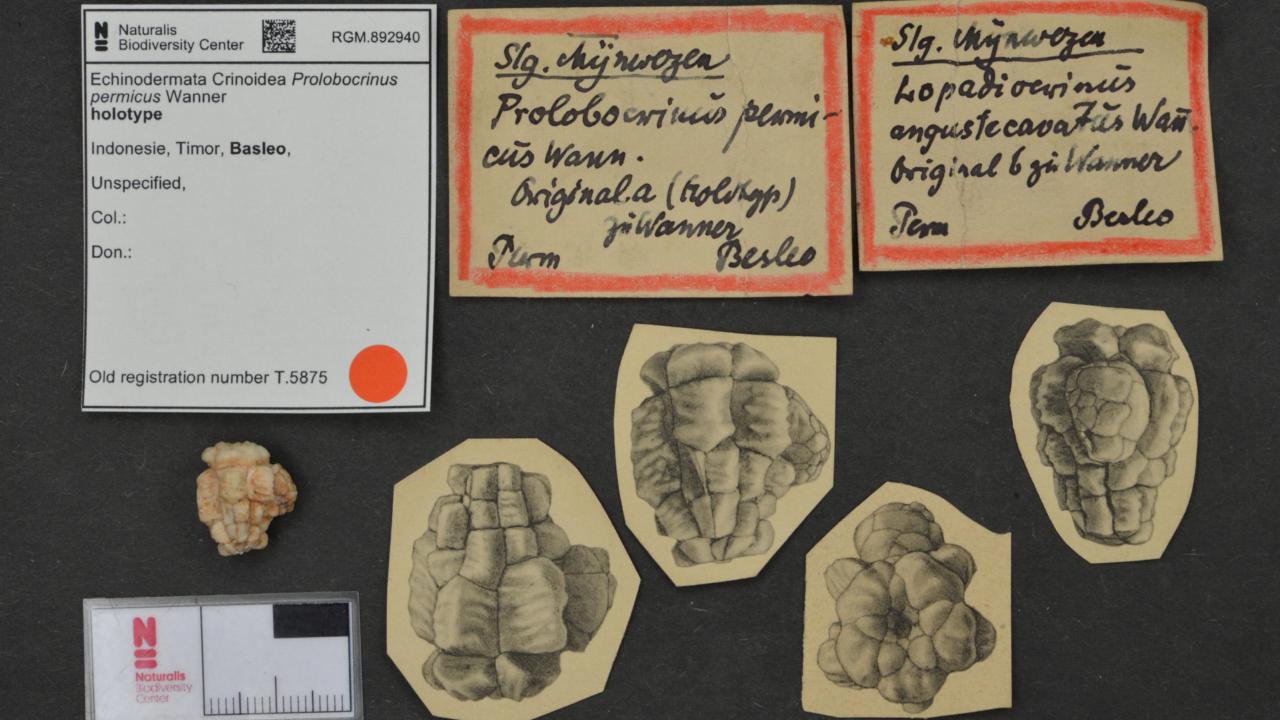 Naturalis
Biodiversity Center
RGM.892940
Echinodermata Crinoidea Prolobocrinus
permicus Wanner
holotype
Indonesie, Timor, Basleo,
Unspecified,
Col.:
Don.:
Old registration number T.5875
Slg.
Prolobocrinus permi-
cus Wann.
Original a (Holotyp)
zu Wanner
Perm Besleo
Slg.
Lopadiocrinus
angustecavatus Wann.
Original b zu Wanner
Perm Besleo
Naturalis
Biodiversity
Center